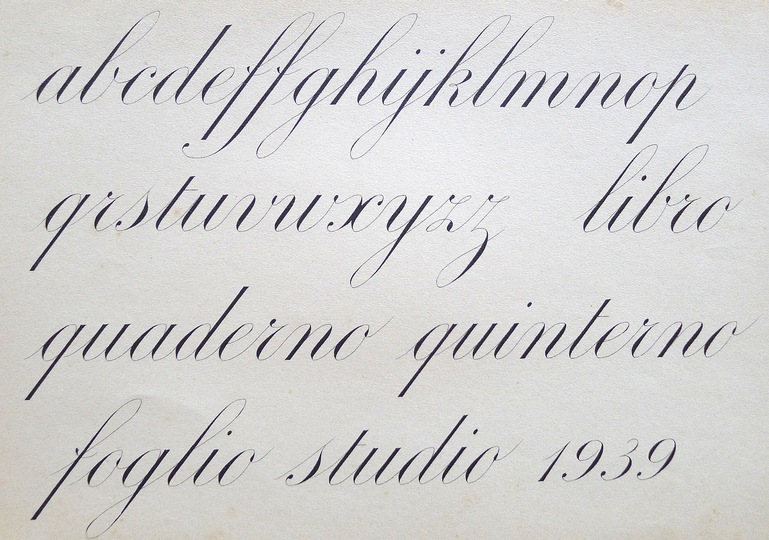 abcdeffghijklmnop
qrstuvwxyzz libro
quaderno quinterno
foglio studio 1939